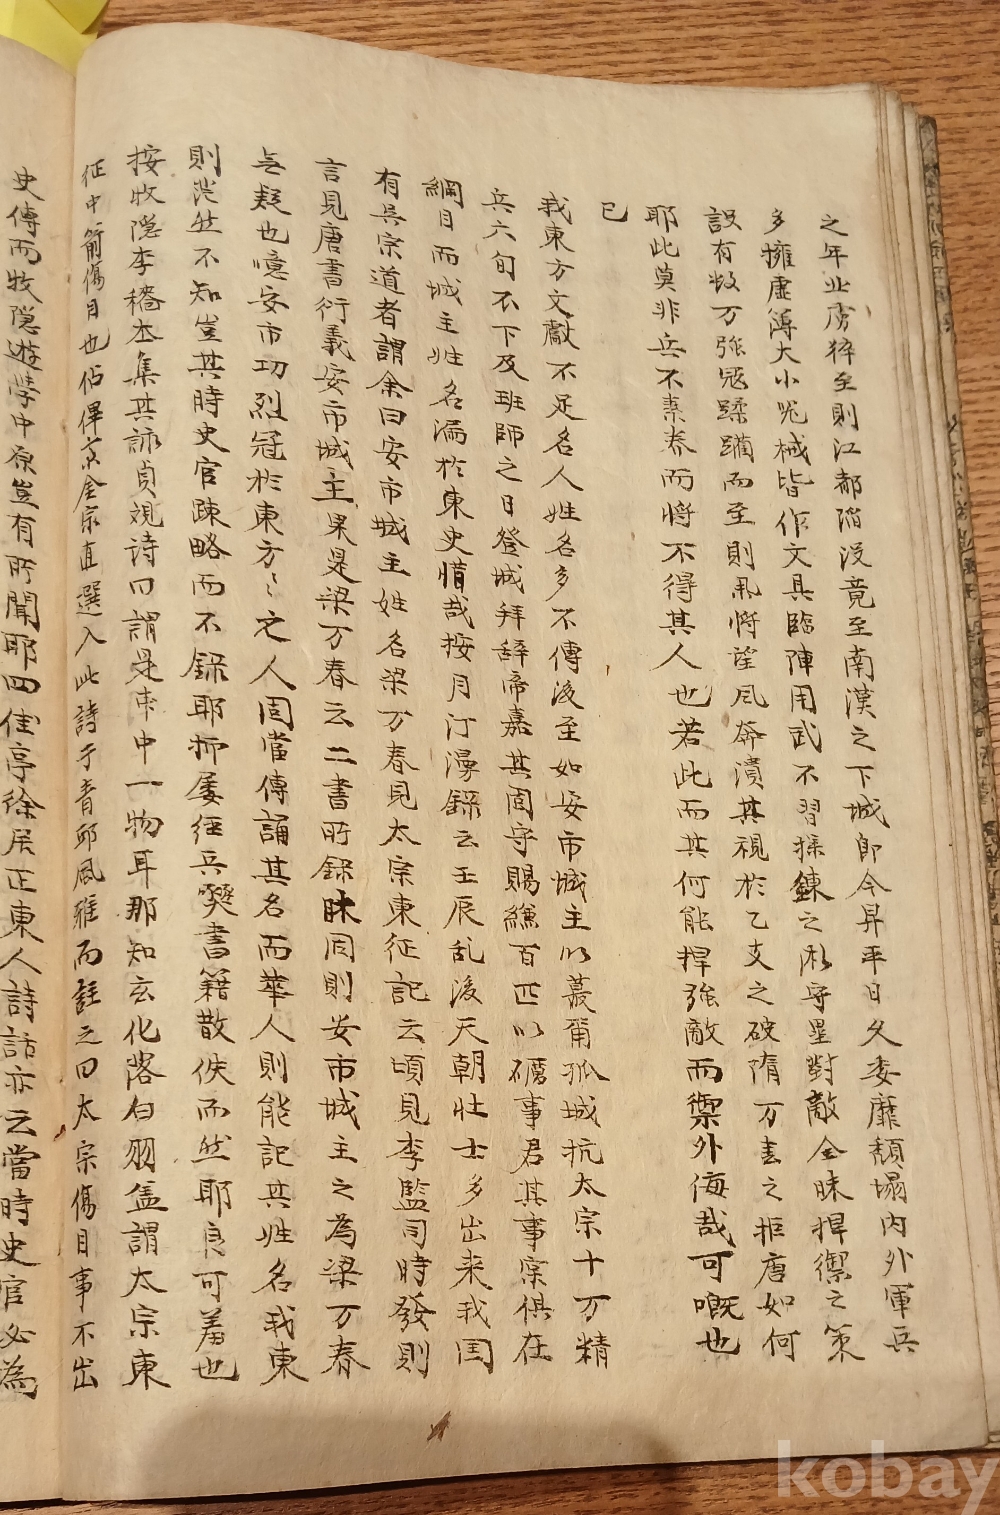 之年北虜猝至則江都陷没竟至南漢之下城即今昇平日久委靡頹塌内外軍兵
多擁虛簿大小器械皆作文具臨陣用武不習操鍊之術守堡對敵全昧捍禦之策
設有数万強冦蹂躪而至則吊將望风奔潰其視於乙支之破隋万春之拒唐如何
耶此莫非兵不素养而將不得其人也若此而其何能捍強敵而禦外侮哉可嘅也
已
我東方文獻不足名人姓名多不傳後至如安市城主以蕞甭孤城抗太宗十万精
兵六旬不下及班師之日登城拜辞帝嘉其固守賜縑百匹以礪事君其事宲俱在
綱目而城主姓名漏於東史惜哉按月汀漫録云壬辰乱後天朝壮士多出来我国
有吳宗道者謂余曰安市城主姓名梁万春見太宗東征記云頃見李監司時發則
言見唐書衍義安市城主果是梁万春云二書所録脗同則安市城主之為梁万春
無疑也噫安市功烈冠於東方〻之人固當傳誦其名而華人則能記其姓名我東
則茫然不知豈其時史官踈略而不録耶抑屡経兵燹書籍散佚而然耶良可羞也
按牧隐李穡夲集其詠貞覌詩曰謂是囊中一物耳那知玄化落白羽盖謂太宗東
征中箭傷目也佔俾亝金宗直選入此詩于青邱風雅而註之曰太宗傷目事不出
史傳而牧隠遊学中原豈有所聞耶四佳亭徐居正東人詩話亦云當時史官必為